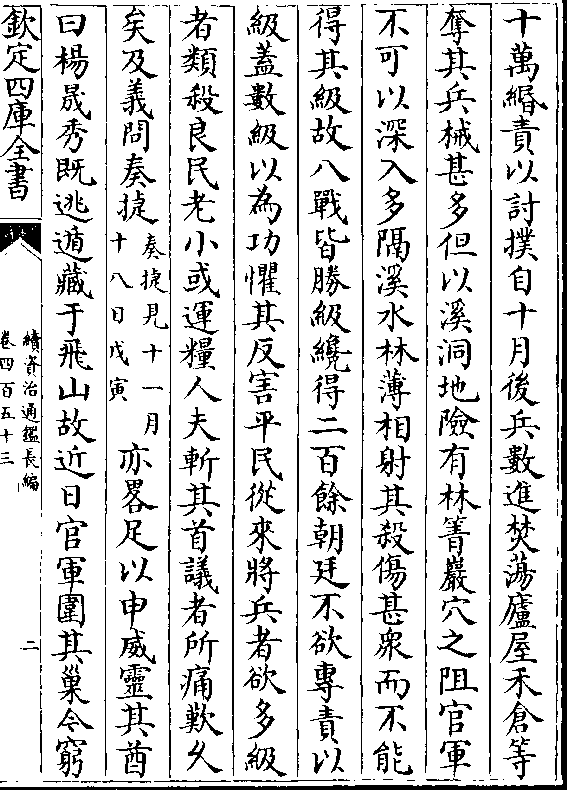 十萬緡責以討撲自十月後兵數進焚蕩廬屋禾倉等
奪其兵械甚多但以溪洞地險有林箐巖穴之阻官軍
不可以深入多隔溪水林薄相射其殺傷甚衆而不能
得其級故八戰皆勝級纔得二百餘朝廷不欲專責以
級蓋數級以為功懼其反害平民從來將兵者欲多級
者類殺良民老小或運糧人夫斬其首議者所痛歎久
矣及義問奏捷奏捷見十一月十八日戊寅亦畧足以申威靈其酋
曰楊晟秀既逃遁藏于飛山故近日官軍圍其巢令窮
欽定四庫全書
續資治通鑑長編
卷四百五十三
二